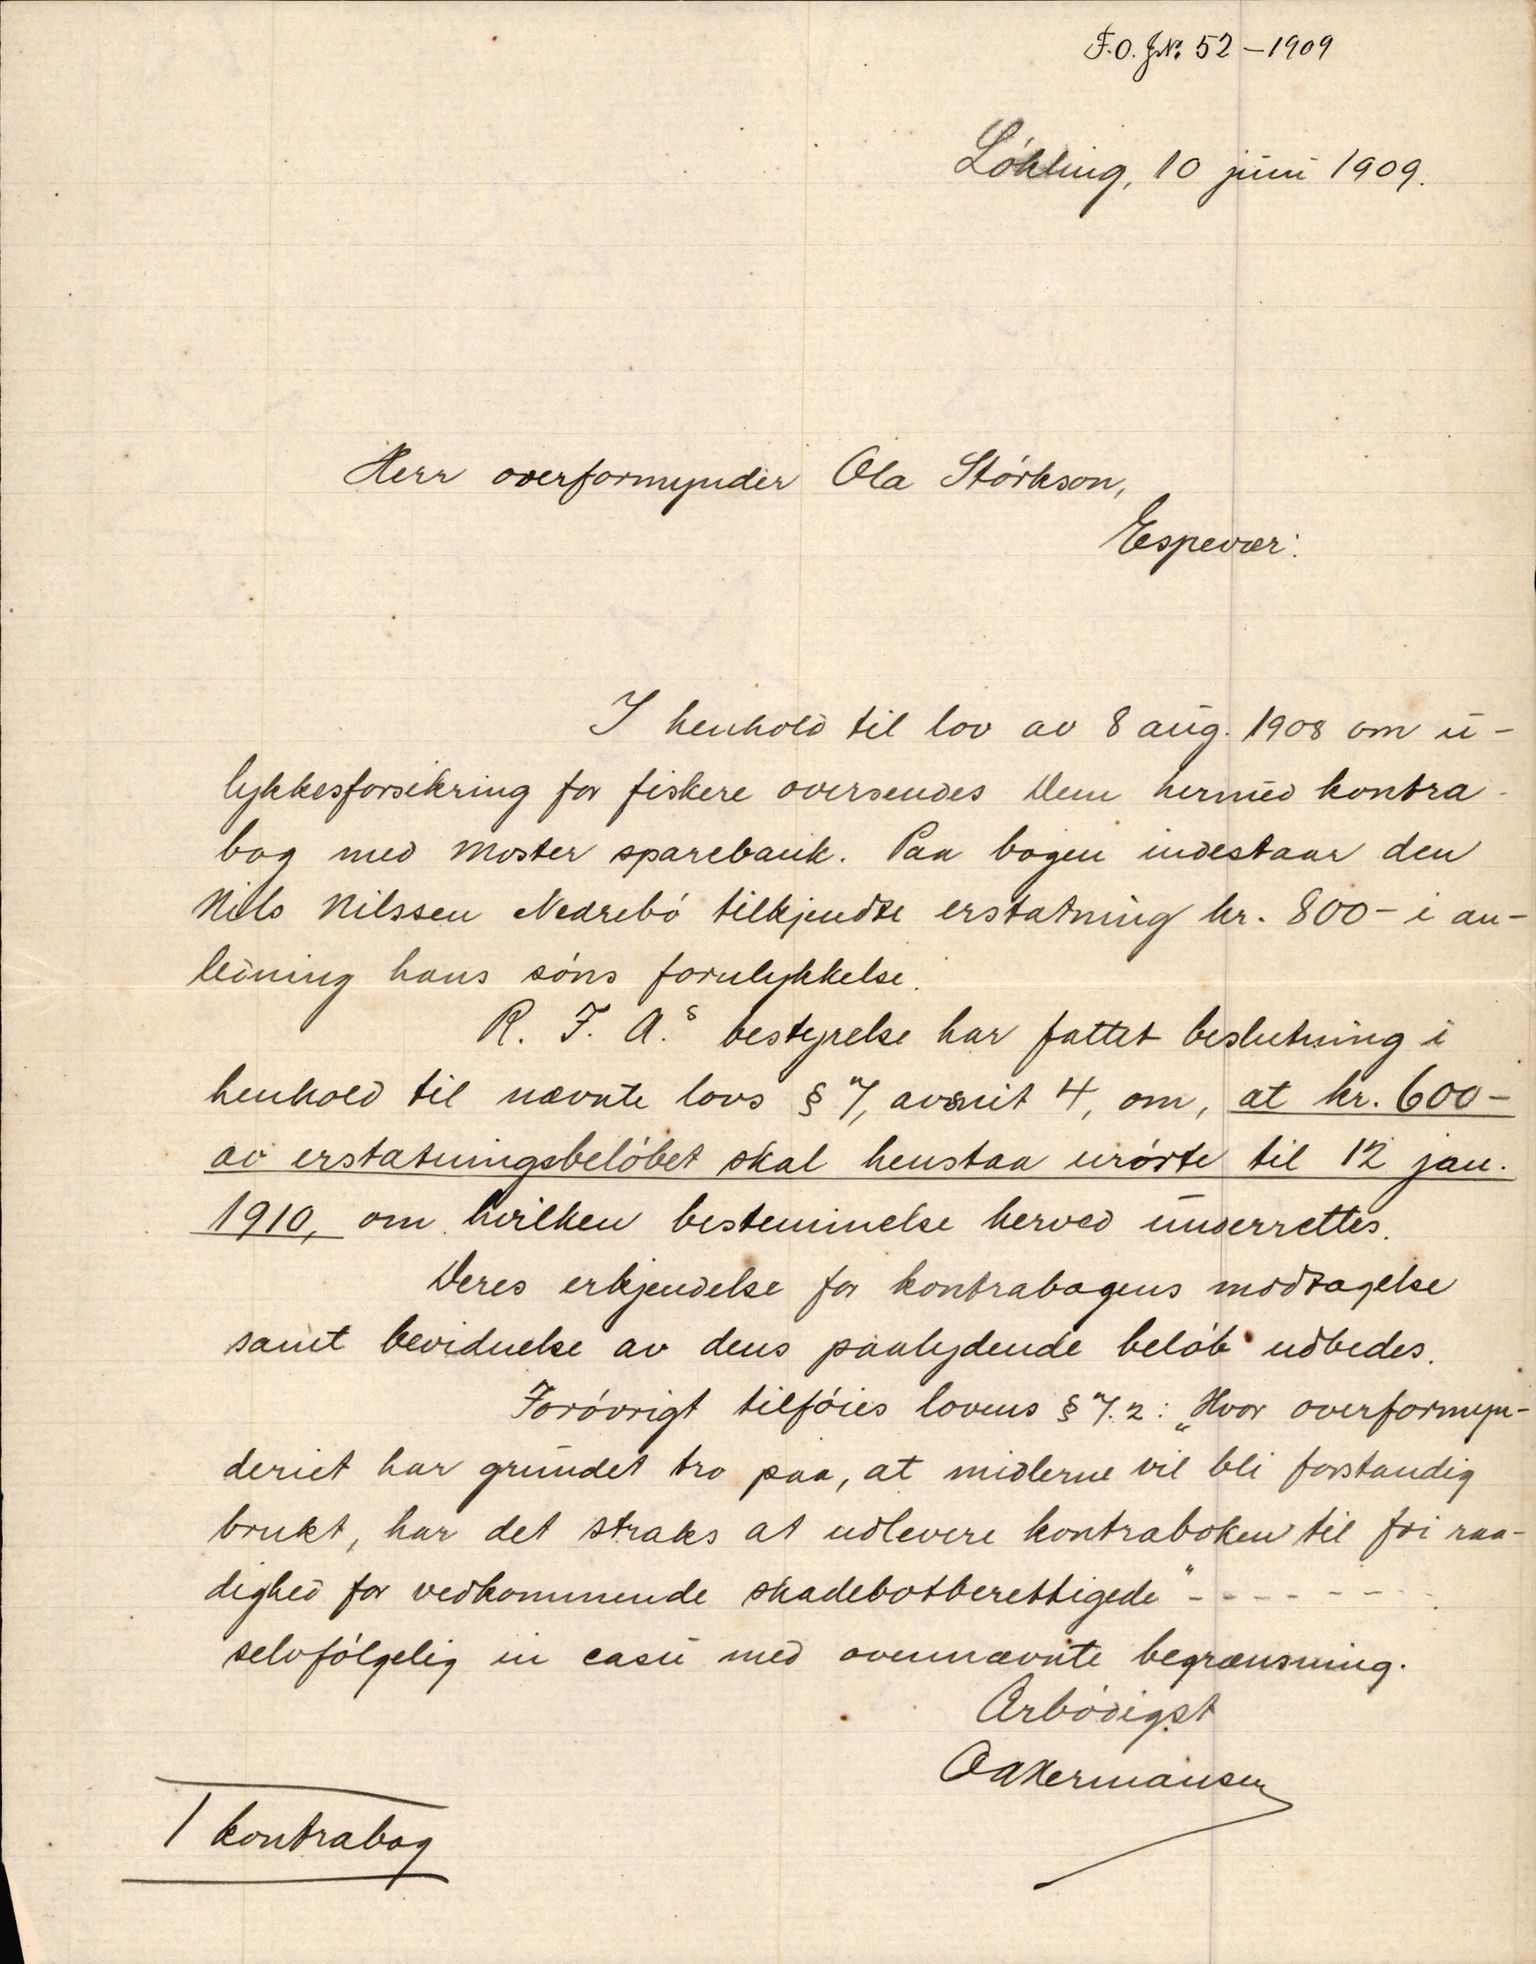 F.O. J№ 52 – 1909
Løkling, 10 juni 1909.
Herr overformynder Ola Størkson,
Espevær:
I henhold til lov av 8 aug. 1908 om u-
lykkesforsikring for fiskere oversendes Dem hermed kontra-
bog med Moster sparebank. Paa bogen indestaar den
Nils Nilssen Nedrebø tilkjendte erstatning kr. 800 – i an-
ledning hans søns forulykkelse.
R. F. A.s bestyrelse har fattet beslutning i
henhold til nævnte lovs § 7, avsnit 4, om, at kr. 600 –
av erstatningsbeløbet skal henstaa urørte til 12 jan.
1910, om hvilken bestemmelse herved underrettes.
Deres erkjendelse for kontrabogens modtagelse
samt bevidnelse av dens paalydende beløb udbedes.
Forøvrigt tilføies lovens § 7.2: „Hvor overformyn-
deriet har grundet tro paa, at midlerne vil bli forstandig
brukt, har det straks at udlevere kontraboken til fri raa-
dighed for vedkommende skadebotberettigede" - - - - - - -
selvfølgelig in casu med ovennævnte begrænsning.
Ærbødigst
O A Hermansen
1 kontrabog